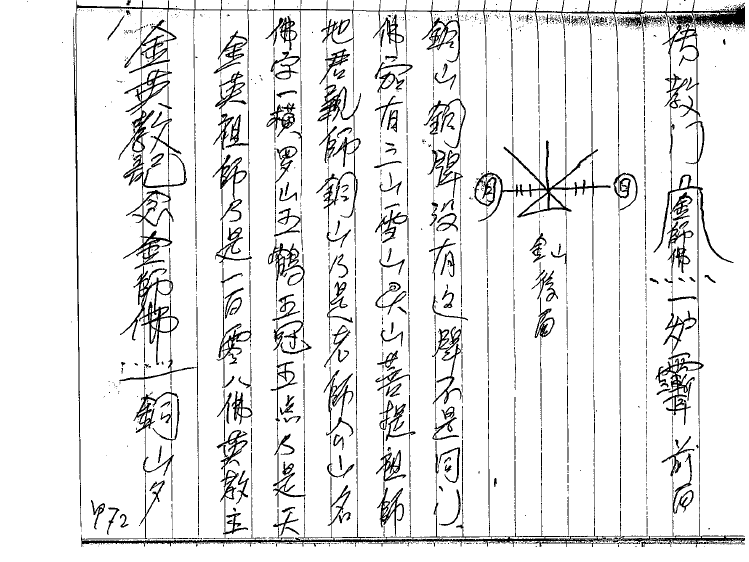 傳教门 金師佛 一炉靈 前面
月 日
金山後面
銅山銅譬没有这譬不是同门
佛家有三山雪山灵山菩提祖師
地君親師銅山乃是老師公山名
佛字一横罗山五鶴五冠五点乃是天
金英祖師乃是一百零八佛英教主
金英教記念金師佛 銅山夕
472